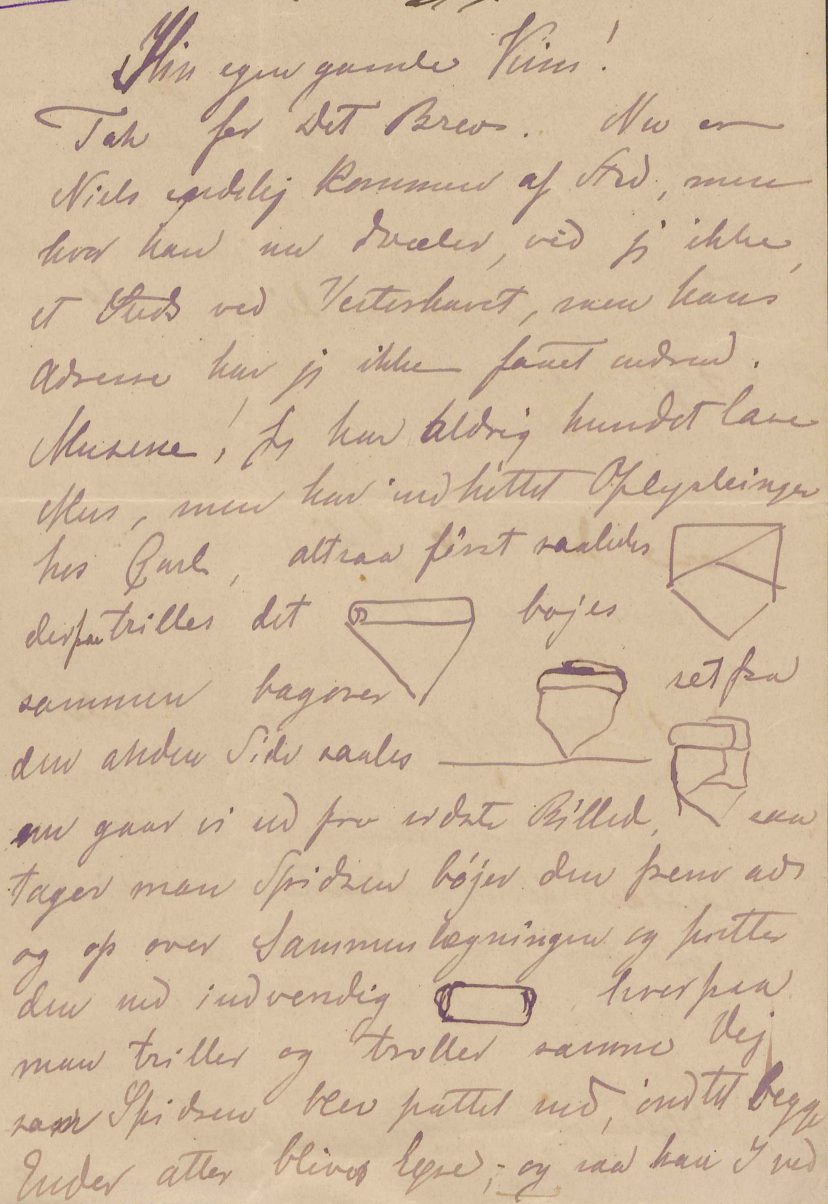 Min egen gamle Vims!
Tak for Det Brev. Nu er
Niels endelig kommen af Sted, men
hvor han nu dvæler, ved jg ikke,
et Steds ved Vesterhavet, men hans
Adresse har jg ikke faaet endnu.
Musene! Jg har aldrig kundet lave
Mus, men har indhéttet Oplysninger
hos Carl, altsaa først saaledes
derpaa trilles det bøjes
sammen bagover set fra
den anden Side saales
nu gaar vi ud fra sidste Billed, saa
tager man Spidsen bøjer den frem ad
og op over Sammenlægningen og putter
den ned indvendig hverpaa
man triller og troller samme Vej
som Spidsen blev puttet ned, indtil begge
Ender atter blive løse; og saa kan I ved